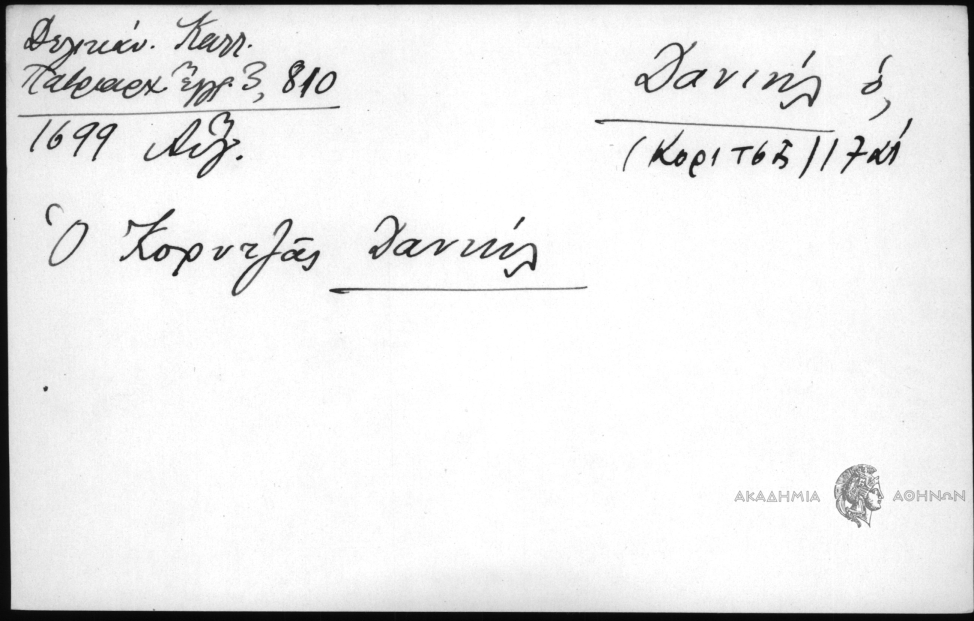 Δελικάν. Καλλ.
Πατριαρχ Ἔγγρ 3, 810
1699 Αὔγ.
Δανιήλ ὁ,
(Κοριτσᾶ) 17 αἰ
Ὁ Κορυτζᾶς Δανιήλ
ΑΚΑΔΗΜΙΑ ΑΘΗΝΩΝ